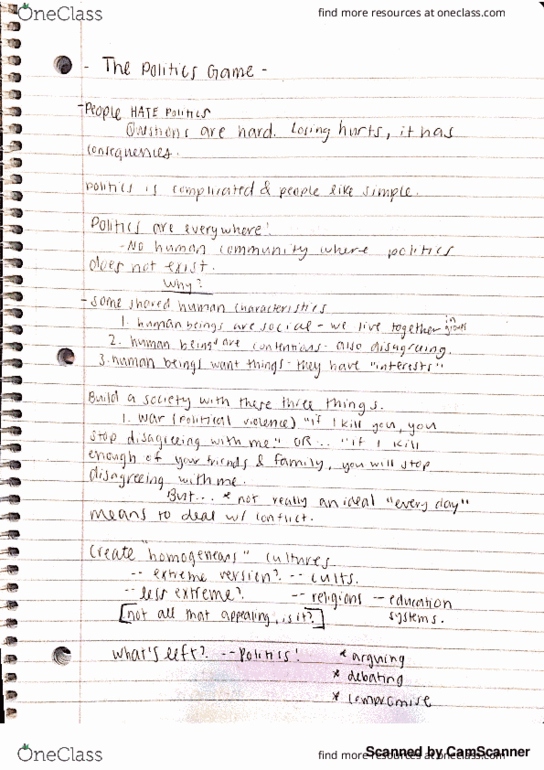 OneClass
find more resources at oneclass.com
- The Politics Game -
- People HATE Politics
Questions are hard. Losing hurts, it has
consequences.
politics is complicated & people like simple.
Politics are everywhere!
- No human community where politics
does not exist.
Why?
- Some shared human characteristics
1. human beings are social - we live together in groups
2. human beings are contentious - also disagreeing.
3. human beings want things - they have "interests"
Build a society with these three things.
1. war (political violence) "if I kill you, you
stop disagreeing with me" OR... "if I kill
enough of your friends & family, you will stop
disagreeing with me.
But... * not really an ideal "every day"
means to deal w/ conflict.
Create "homogeneans" cultures
-- extreme version? -- cults.
-- less extreme? -- religions -- education
systems.
[not all that appealing, is it?]
what's left? -- Politics! * arguing
* debating
* compromise
OneClass
find more resources at oneclass.com
Scanned by CamScanner